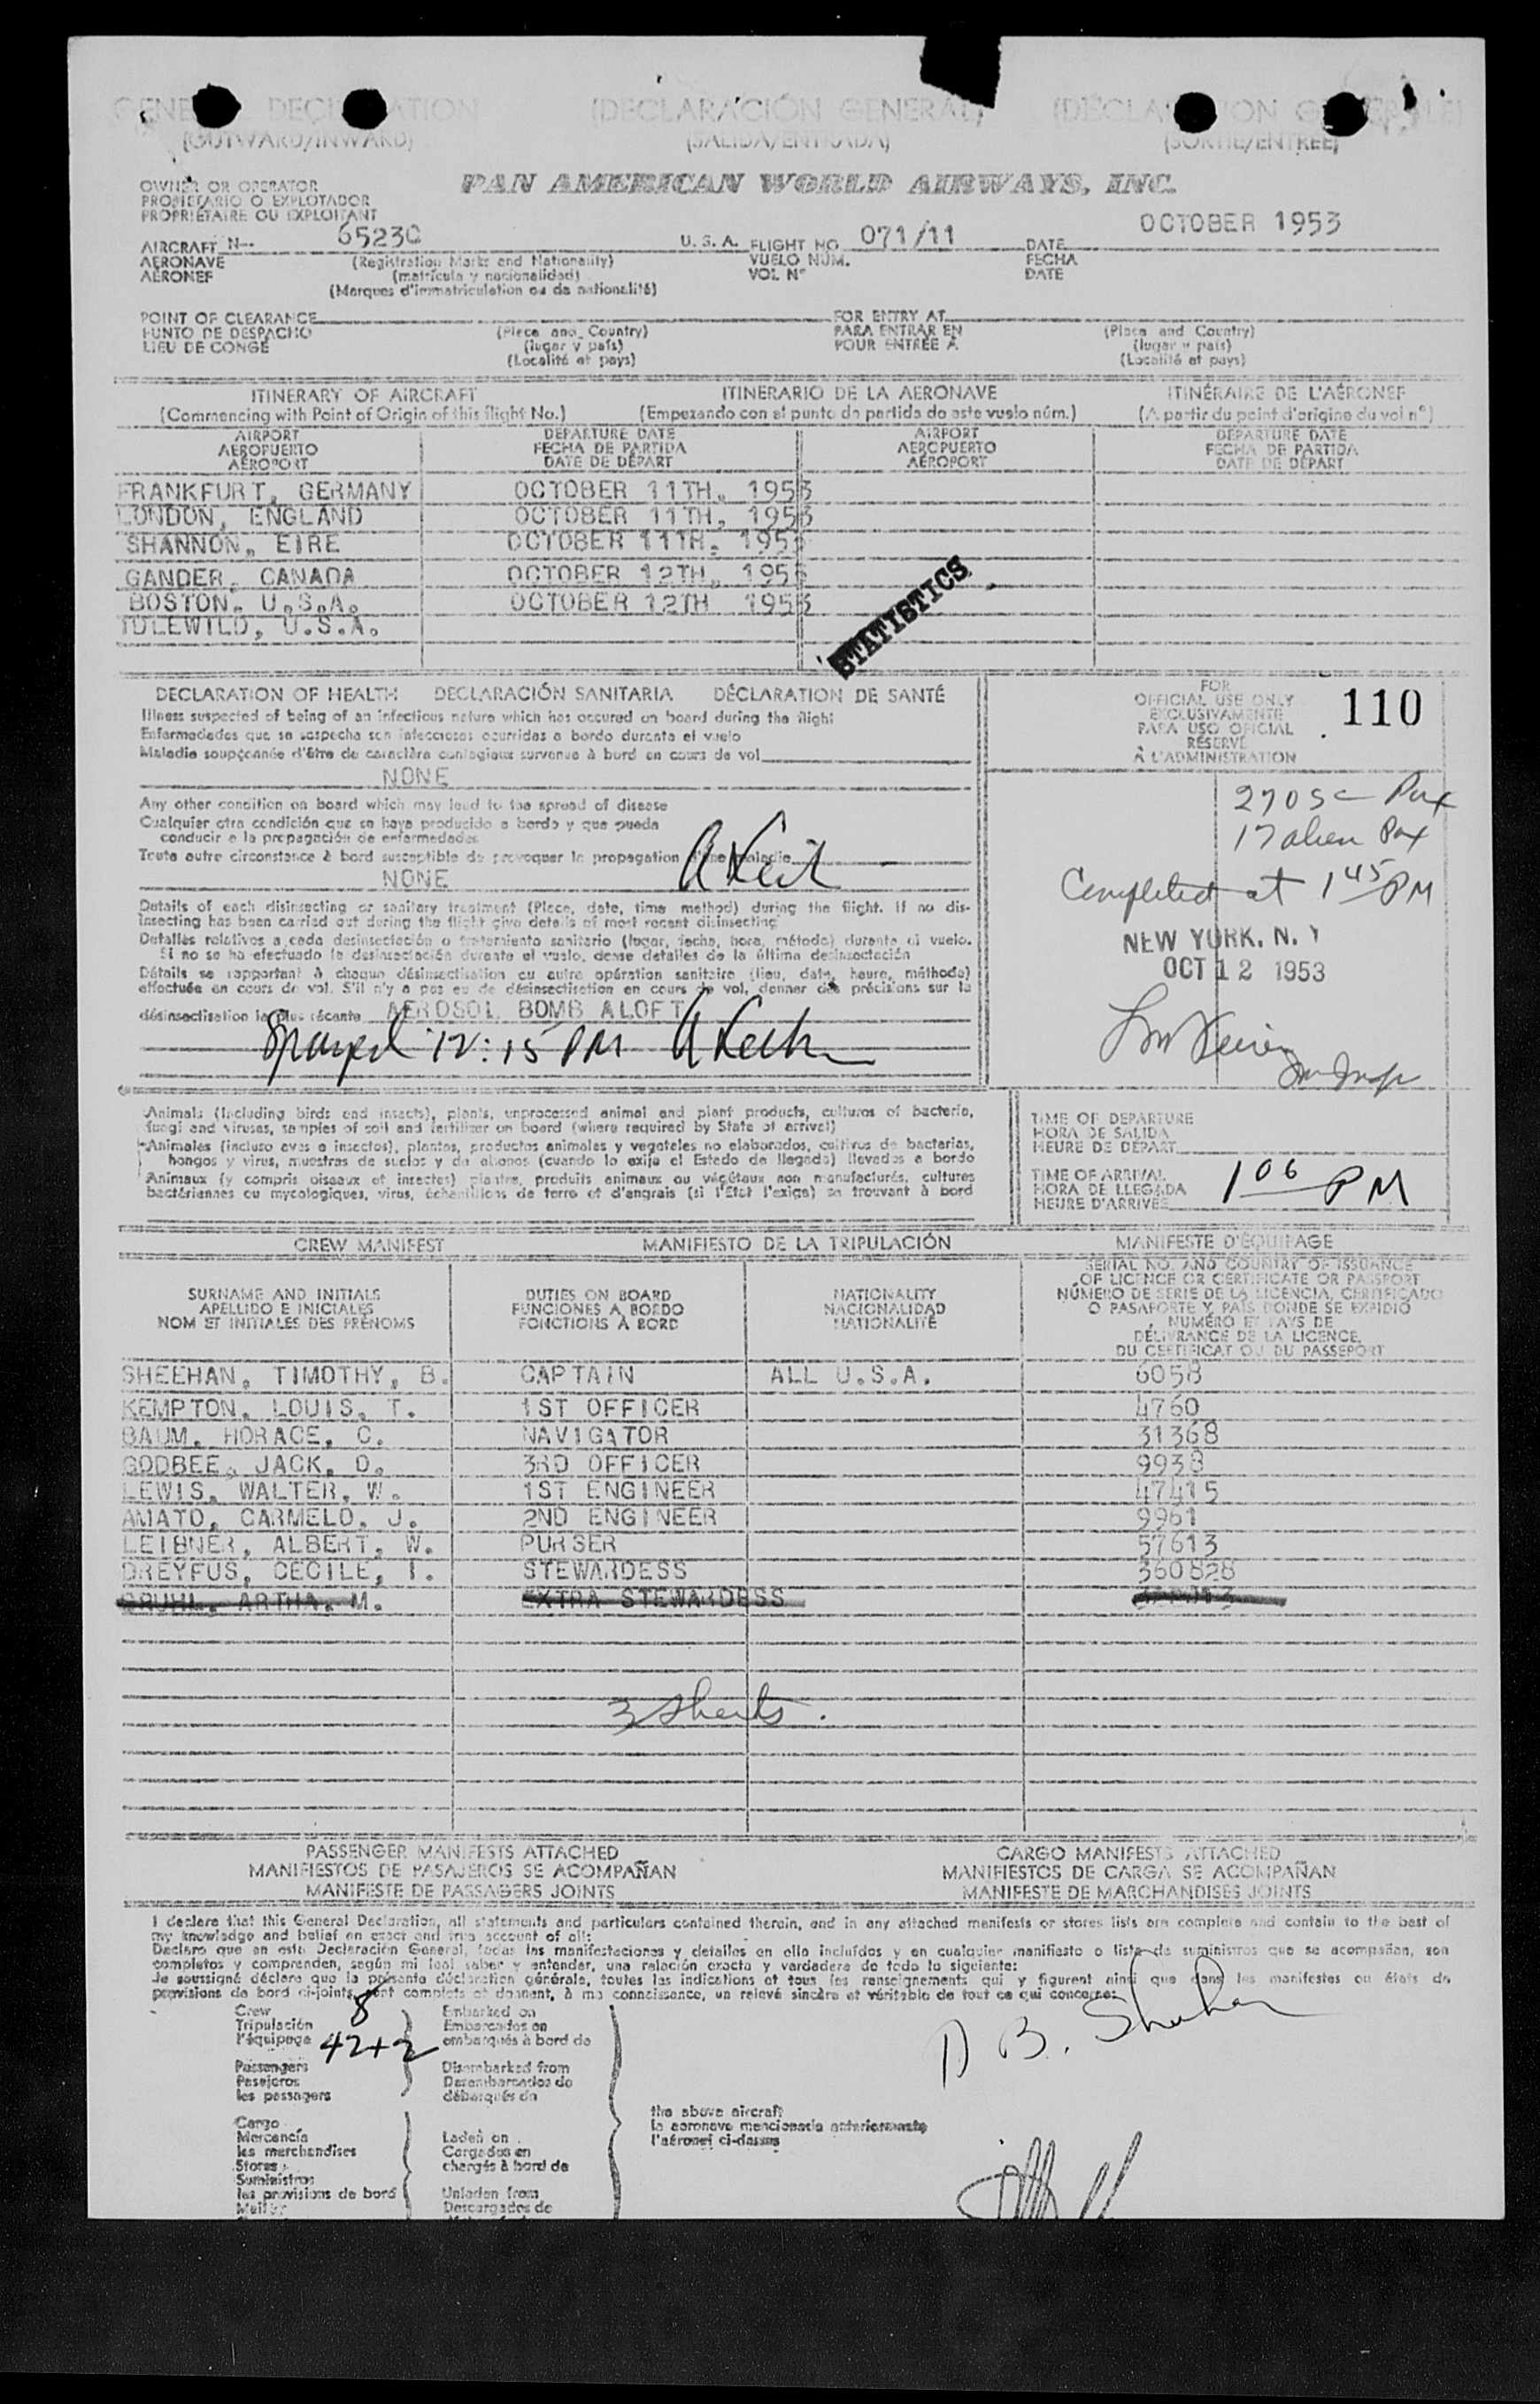 GENERAL DECLARATION (DECLARACIÓN GENERAL) (DÉCLARATION GÉNÉRALE)
(OUTWARD/INWARD) (SALIDA/ENTRADA) (SORTIE/ENTREE)
PAN AMERICAN WORLD AIRWAYS, INC.
OWNER OR OPERATOR
PROPIETARIO O EXPLOTADOR
PROPRIÉTAIRE OU EXPLOITANT
OCTOBER 1953
AIRCRAFT N-- 6523C U. S. A. FLIGHT NO. 071/11 DATE
AERONAVE (Registration Marks and Nationality) VUELO NÚM. FECHA
AÉRONEF (matrícula y nacionalidad) VOL Nº DATE
(Marques d'immatriculation ou de nationalité)
POINT OF CLEARANCE FOR ENTRY AT
PUNTO DE DESPACHO (Place and Country) PARA ENTRAR EN (Place and Country)
LIEU DE CONGÉ (lugar y país) POUR ENTRÉE À (lugar y país)
(Localité et pays) (Localité et pays)
ITINERARY OF AIRCRAFT ITINERARIO DE LA AERONAVE ITINÉRAIRE DE L'AÉRONEF
(Commencing with Point of Origin of this flight No.) (Empezando con el punto de partida de este vuelo núm.) (A partir du point d'origine du vol nº)
AIRPORT DEPARTURE DATE AIRPORT DEPARTURE DATE
AEROPUERTO FECHA DE PARTIDA AEROPUERTO FECHA DE PARTIDA
AÉROPORT DATE DE DÉPART AÉROPORT DATE DE DÉPART
FRANKFURT, GERMANY OCTOBER 11TH, 1953
LONDON, ENGLAND OCTOBER 11TH, 1953
SHANNON, EIRE OCTOBER 11TH, 1953
GANDER, CANADA OCTOBER 12TH, 1953
BOSTON, U.S.A. OCTOBER 12TH 1953
IDLEWILD, U.S.A.
STATISTICS
DECLARATION OF HEALTH DECLARACIÓN SANITARIA DÉCLARATION DE SANTÉ
Illness suspected of being of an infectious nature which has occured on board during the flight
Enfermedades que se sospecha son infecciosas ocurridas a bordo durante el vuelo
Maladie soupçonnée d'être de caractère contagieux survenue à bord en cours de vol
NONE
Any other condition on board which may lead to the spread of disease
Cualquier otra condición que se haya producido a bordo y que pueda
conducir a la propagación de enfermedades
Toute autre circonstance à bord susceptible de provoquer la propagation d'une maladie
NONE
Details of each disinsecting or sanitary treatment (Place, date, time method) during the flight. If no dis-
insecting has been carried out during the flight give details of most recent disinsecting
Detalles relativos a cada desinsectación o tratamiento sanitario (lugar, fecha, hora, método) durante el vuelo.
Si no se ha efectuado la desinsectación durante el vuelo, dense detalles de la última desinsectación
Détails se rapportant à chaque désinsectisation ou autre opération sanitaire (lieu, date, heure, méthode)
effectuée en cours de vol. S'il n'y a pas eu de désinsectisation en cours de vol, donner des précisions sur la
désinsectisation la plus récente AEROSOL BOMB ALOFT
Sprayed 12:15 PM
FOR
OFFICIAL USE ONLY
EXCLUSIVAMENTE
PARA USO OFICIAL
RÉSERVÉ
À L'ADMINISTRATION
110
17 alien Pax
Completed at 1 45 PM
NEW YORK, N. Y
OCT 12 1953
Animals (including birds and insects), plants, unprocessed animal and plant products, cultures of bacteria,
fungi and viruses, samples of soil and fertilizer on board (where required by State of arrival)
Animales (incluso aves e insectos), plantas, productos animales y vegetales no elaborados, cultivos de bacterias,
hongos y virus, muestras de suelos y de abonos (cuando lo exija el Estado de llegada) llevados a bordo
Animaux (y compris oiseaux et insectes) plantes, produits animaux ou végétaux non manufacturés, cultures
bactériennes ou mycologiques, virus, échantillons de terre et d'engrais (si l'État l'exige) se trouvant à bord
TIME OF DEPARTURE
HORA DE SALIDA
HEURE DE DÉPART
TIME OF ARRIVAL
HORA DE LLEGADA 1 06 PM
HEURE D'ARRIVÉE
CREW MANIFEST MANIFIESTO DE LA TRIPULACIÓN MANIFESTE D'ÉQUIPAGE
SURNAME AND INITIALS
APELLIDO E INICIALES
NOM ET INITIALES DES PRÉNOMS
DUTIES ON BOARD
FUNCIONES A BORDO
FONCTIONS À BORD
NATIONALITY
NACIONALIDAD
NATIONALITÉ
SERIAL NO. AND COUNTRY OF ISSUANCE
OF LICENCE OR CERTIFICATE OR PASSPORT
NÚMERO DE SERIE DE LA LICENCIA, CERTIFICADO
O PASAPORTE Y PAÍS DONDE SE EXPIDIÓ
NUMÉRO ET PAYS DE
DÉLIVRANCE DE LA LICENCE,
DU CERTIFICAT OU DU PASSEPORT
SHEEHAN, TIMOTHY, B. CAPTAIN ALL U.S.A. 6058
KEMPTON, LOUIS, T. 1ST OFFICER 4760
BAUM, HORACE, C. NAVIGATOR 31368
GODBEE, JACK, O. 3RD OFFICER 9938
LEWIS, WALTER, W. 1ST ENGINEER 47415
AMATO, CARMELO, J. 2ND ENGINEER 9961
LEIBNER, ALBERT, W. PURSER 57613
DREYFUS, CECILE, I. STEWARDESS 360828
BRUHL, ARTHA, M. EXTRA STEWARDESS
3 sheets.
PASSENGER MANIFESTS ATTACHED CARGO MANIFESTS ATTACHED
MANIFIESTOS DE PASAJEROS SE ACOMPAÑAN MANIFIESTOS DE CARGA SE ACOMPAÑAN
MANIFESTE DE PASSAGERS JOINTS MANIFESTE DE MARCHANDISES JOINTS
I declare that this General Declaration, all statements and particulars contained therein, and in any attached manifests or stores lists are complete and contain to the best of
my knowledge and belief an exact and true account of all:
Declaro que en esta Declaración General, todas las manifestaciones y detalles en ella incluídos y en cualquier manifiesto o lista de suministros que se acompañan, son
completos y comprenden, según mi leal saber y entender, una relación exacta y verdadera de todo lo siguiente:
Je soussigné déclare que la présente déclaration générale, toutes les indications et tous les renseignements qui y figurent ainsi que dans les manifestes ou états de
provisions de bord ci-joints, sont complets et donnent, à ma connaissance, un relevé sincère et véritable de tout ce qui concerne:
Crew 8 Embarked on
Tripulación Embarcados en
l'équipage 42+2 embarqués à bord de
Passengers Disembarked from
Pasajeros Desembarcados de
les passagers débarqués de
Cargo
Mercancía Laden on
les marchandises Cargados en
Stores chargés à bord de
Suministros
les provisions de bord Unladen from
Mail Descargados de
the above aircraft
la aeronave mencionada anteriormente
l'aéronef ci-dessus